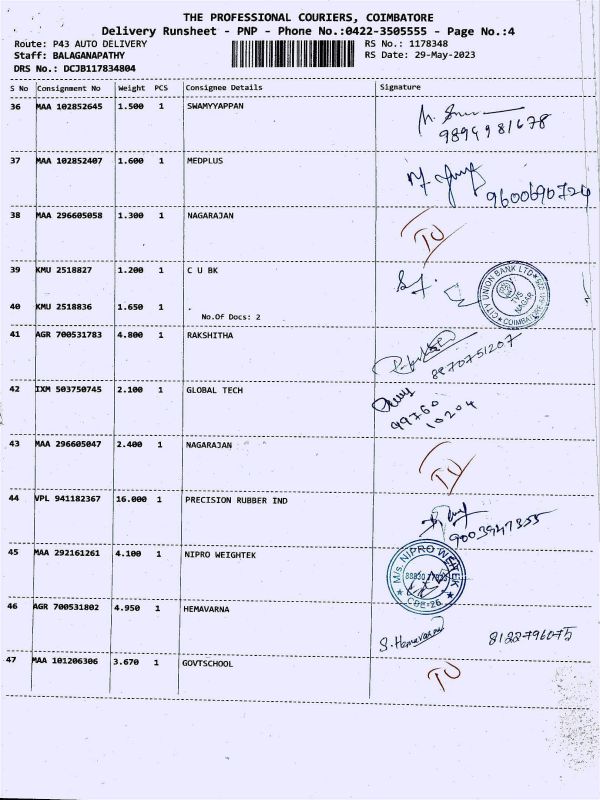 THE PROFESSIONAL COURIERS, COIMBATORE
Delivery Runsheet - PNP - Phone No.:0422-3505555 - Page No.:4
Route: P43 AUTO DELIVERY RS No.: 1178348
Staff: BALAGANAPATHY RS Date: 29-May-2023
DRS No.: DCJB117834804
S No Consignment No Weight PCS Consignee Details Signature
36 MAA 102852645 1.500 1 SWAMYYAPPAN
9894981678
37 MAA 102852407 1.600 1 MEDPLUS
9600690724
38 MAA 296605058 1.300 1 NAGARAJAN
TU
39 KMU 2518827 1.200 1 C U BK
CITY UNION BANK LTD
TVS NAGAR
COIMBATORE
40 KMU 2518836 1.650 1 .
No.Of Docs: 2
41 AGR 700531783 4.800 1 RAKSHITHA
8870751207
42 IXM 503750745 2.100 1 GLOBAL TECH
99760
10204
43 MAA 296605047 2.400 1 NAGARAJAN
TU
44 VPL 941182367 16.000 1 PRECISION RUBBER IND
9003947355
45 MAA 292161261 4.100 1 NIPRO WEIGHTEK
M/s. NIPRO WEIGHTEK
CBE-26
46 AGR 700531802 4.950 1 HEMAVARNA
S. Hemavarna 8122796075
47 MAA 101206306 3.670 1 GOVTSCHOOL
TU